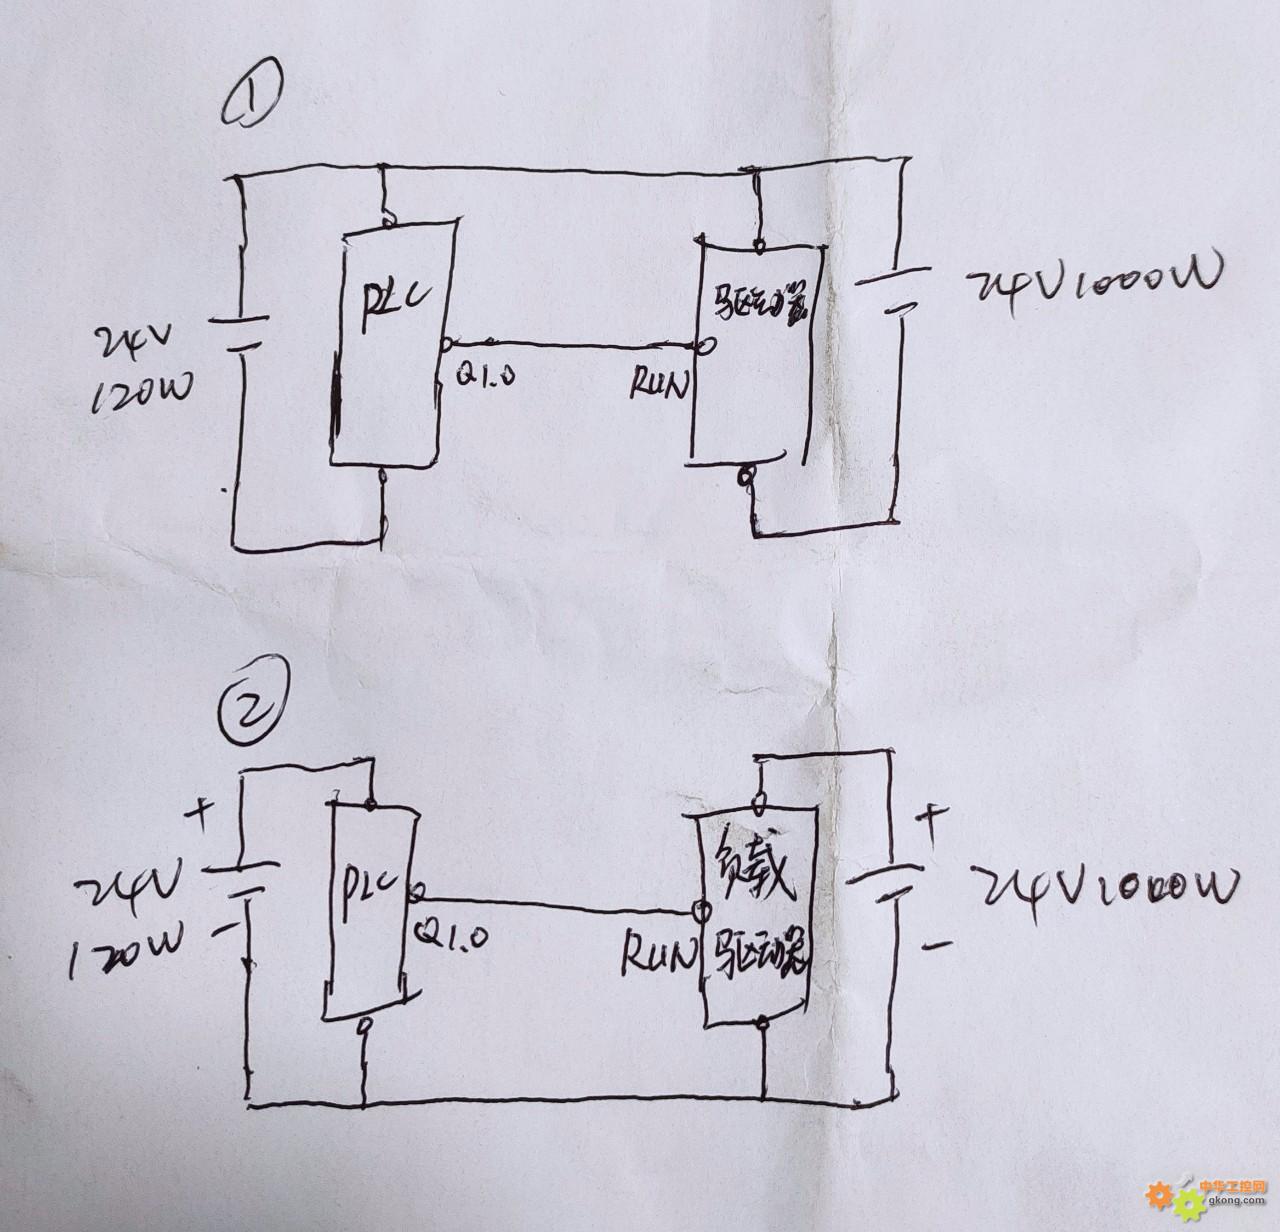 ①
24V
120W
PLC
Q1.0
RUN
驱动器
24V1000W
②
+
24V
120W
-
PLC
Q1.0
RUN
负载
驱动器
+
24V1000W
-
中华工控网
gkong.com